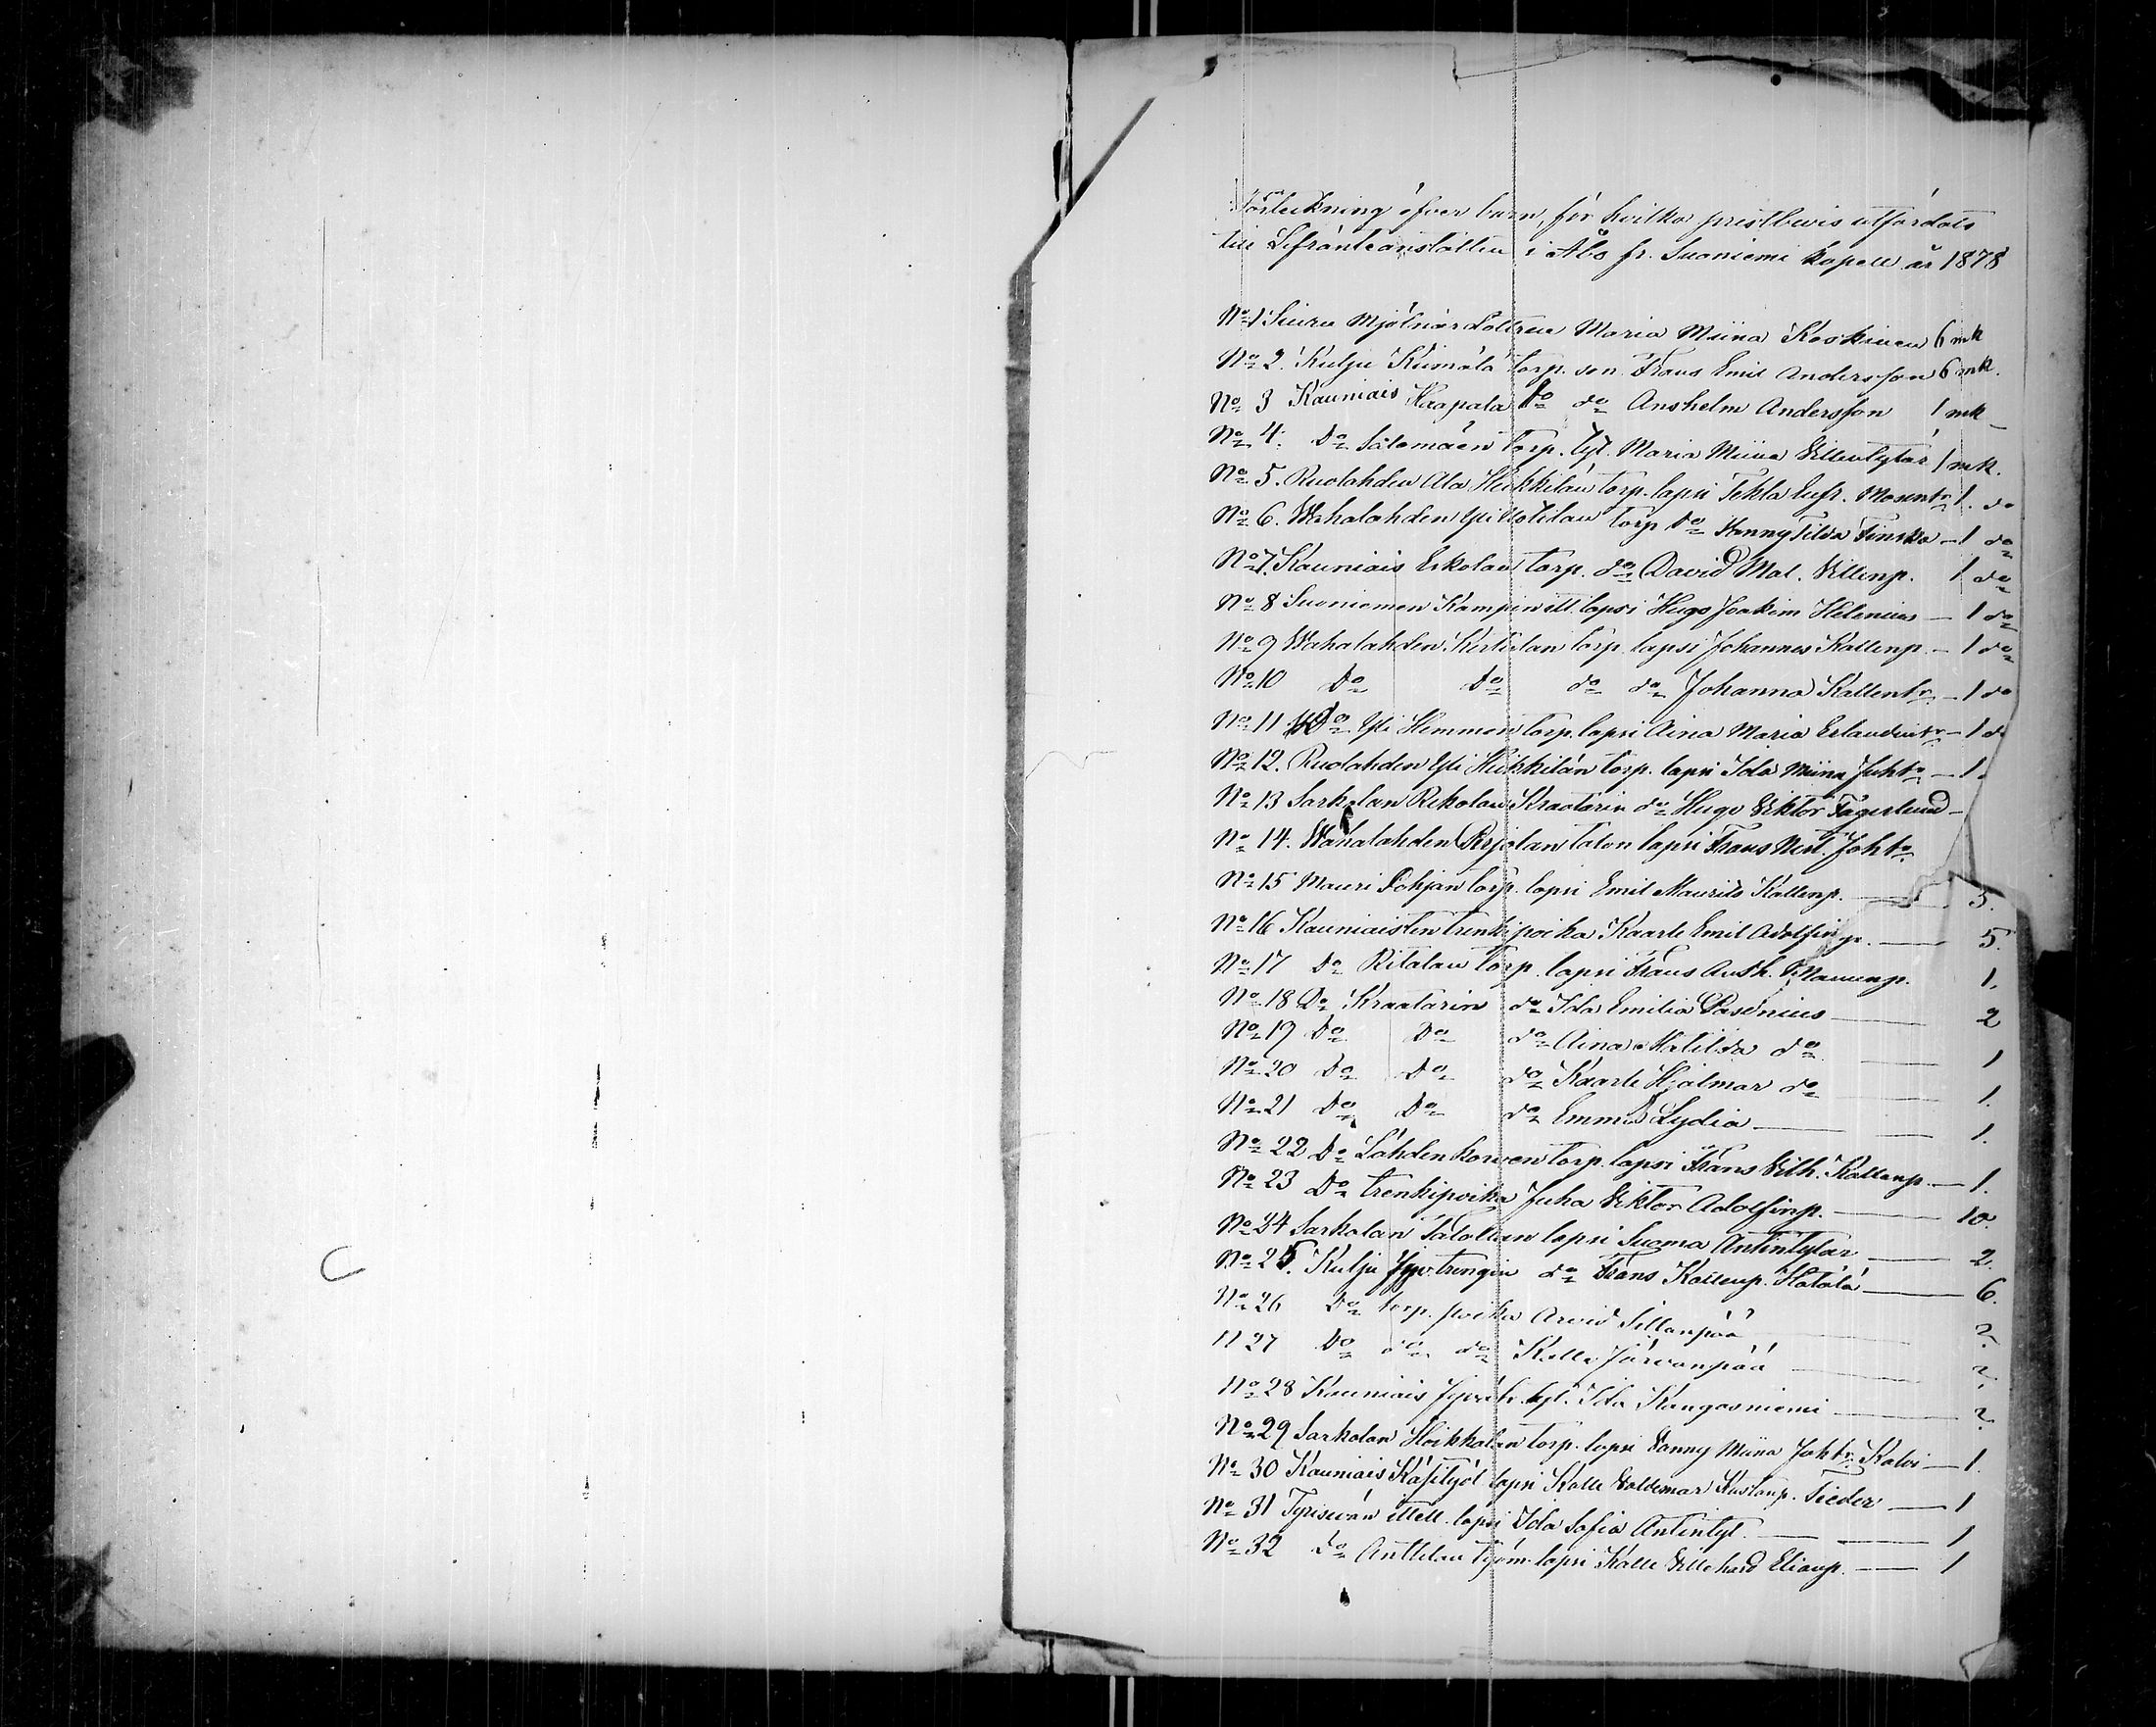 Förteckning öfver barn, för hvilka prestbevis utfärdats
till Lifränteanstalten i Åbo fr. Suoniemi kapell år 1878
No 1 Siuru Mjölnar dottren Maria Miina Koskinen 6 mk
No 2. Kulju Kiimala torp. son Frans Emil Andersson 6 mk.
No 3 Kauniais Haapala do do Anshelm Andersson 1 mk
No 4. Do Salomäen torp. tyt. Maria Miina Villentytär 1 mk.
No 5. Ruolahden Ala Heikkilän torp. lapsi Tekla Eufr. 1. do
No 6. Wahalahden Yli torp do Fanny Tilda Finska – 1 do
No 7. Kauniais Erkolan torp. do David Mat. Villenp. 1 do
No 8 Suoniemen Kampin itl. lapsi Hugo Joakim Helenius – 1 do
No 9 Wahalahden Kertulan torp lapsi Johannes Kallenp. – 1 do
No 10 Do Do do do Johanna Kallentr – 1 do
No 11 Do Yli Hemmon torp. lapsi Aina Maria – 1 d
No 12. Ruolahden Yli Heikkilän torp. lapsi Ida Miina Juhtr – 1.
No 13 Sarkolan Rekolan Kraatarin do Hugo Viktor Fagerlund –
No 14. Wahalahden Perjolan talon lapsi Frans Joht
No 15 Mauri Pohjan torp. lapsi Emil Maurits Kallenp. — 5.
No 16 Kauniaisten trenkipoika Kaarle Emil Adolfinp. — 5.
No 17 Do Ritalan torp. lapsi Frans Anth. 1.
No 18 Do Kraatarin do Ida Emilia Pasenius — 2
No 19 Do Do do Aina Matilda do — 1
No 20 Do Do do Kaarle Hjalmar do — 1.
No 21 Do Do do Emma Lydia — 1.
No 22 Do Lähden Korven torp. lapsi Frans Vilh. Kallenp. — 1.
No 23 Do trenkipoika Juha Viktor Adolfinp. — 10.
No 24 Sarkolan lapsi Suoma Antintytär — 2.
No 25. Kulju trengin do Frans Kallenp. Hatala — 6.
No 26 Do torp. poika Arvid Sillanpää 2.
N 27 Do do do Kalle Järvenpää 2.
No 28 Kauniais tyt. Ida Kangasniemi — 2
No 29 Sarkolan Heikkolan torp. lapsi Fanny Miina Johtr Kalvi — 1.
No 30 Kauniais Käsityöl lapsi Kalle Valdemar Kustanp. — 1
No 31 ittell. lapsi Ida Sofia Antintyt. — 1
No 32 do Anttilan työm. lapsi Kalle Villehard Elianp. — 1